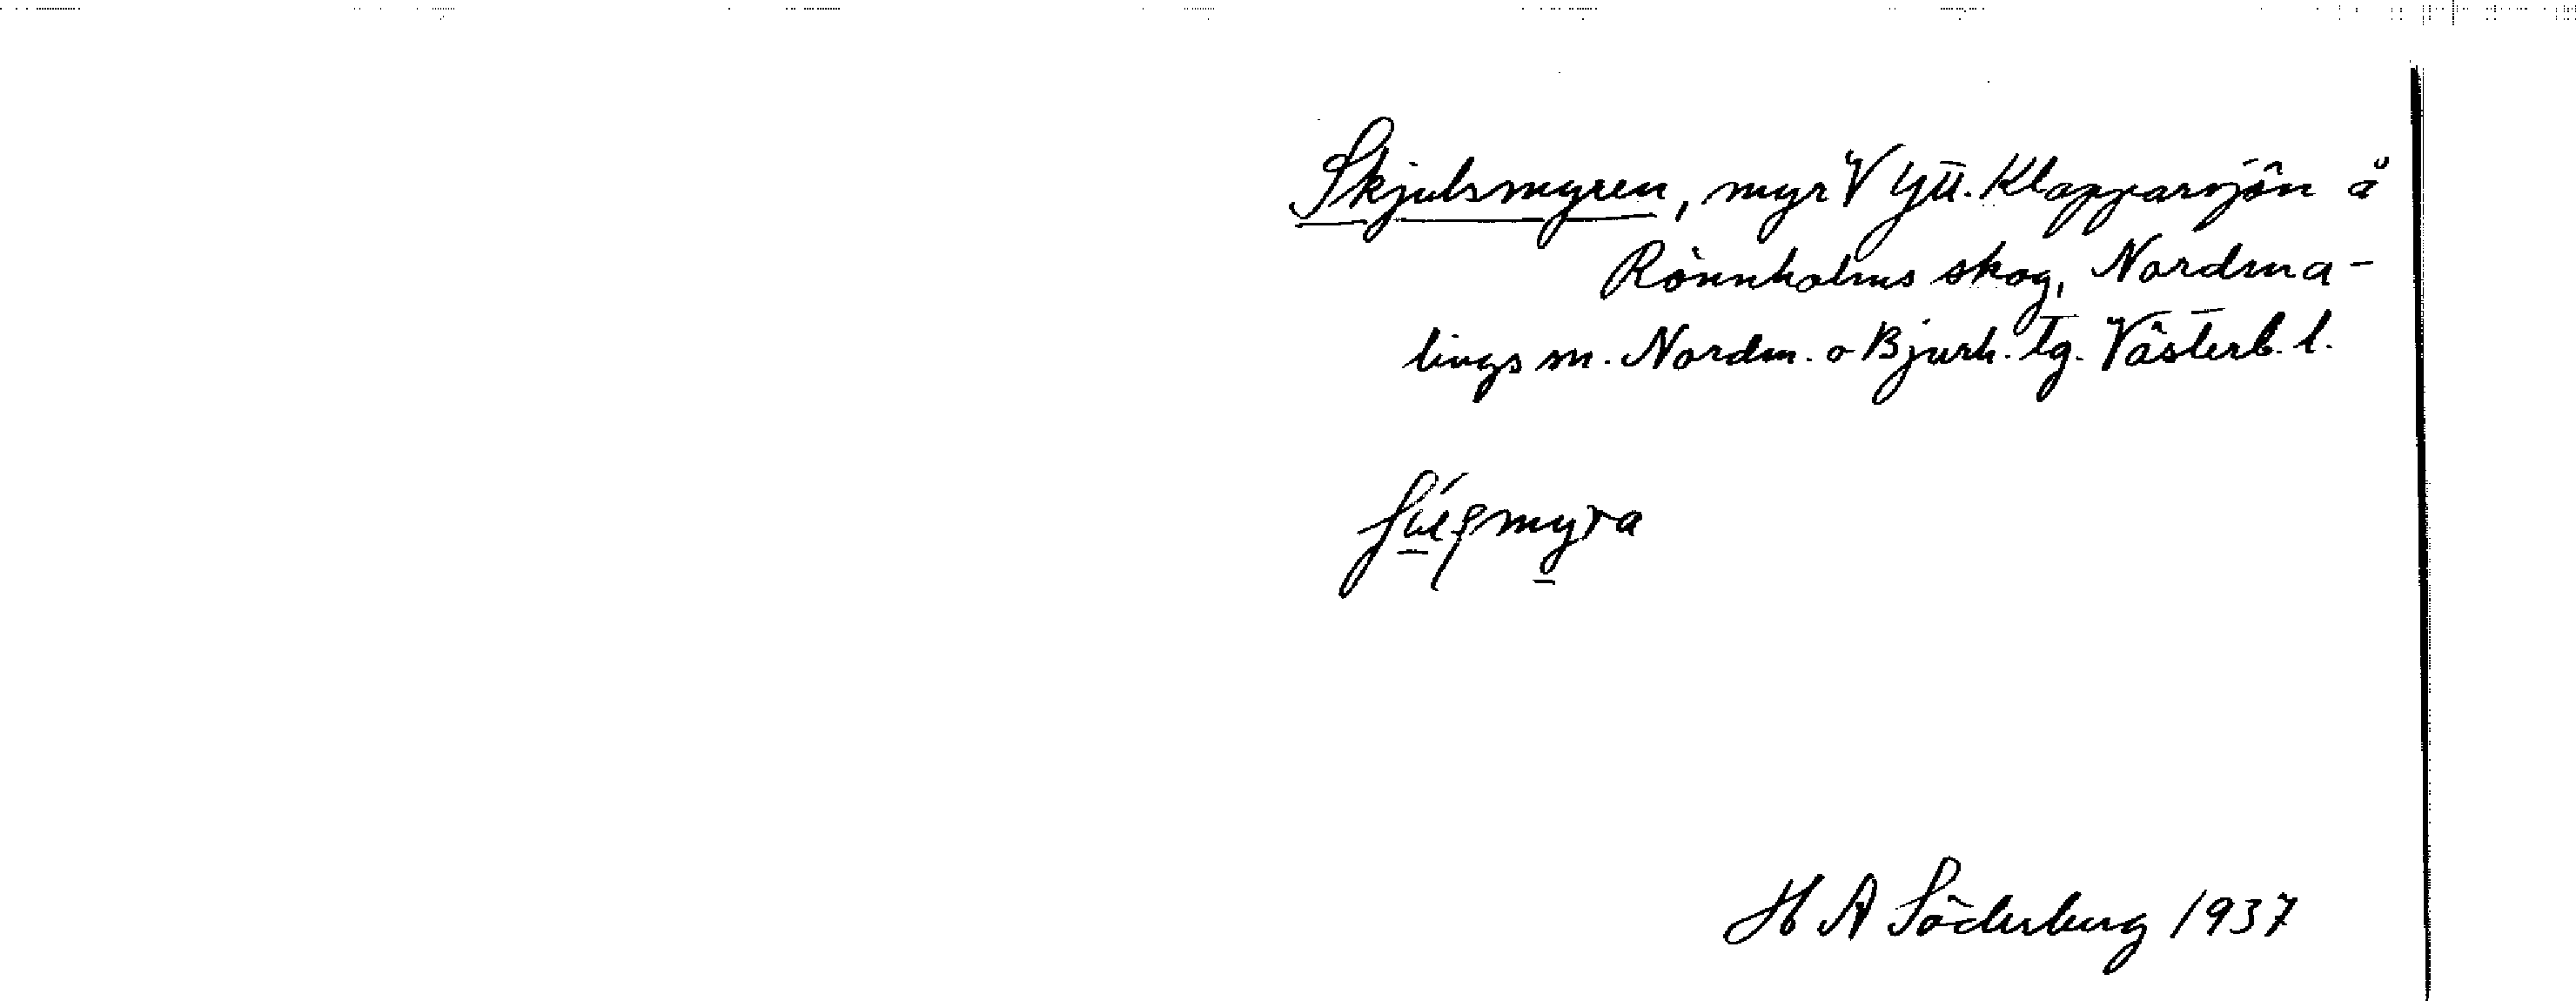 Skjulsmyren, myr V Ytt. Klapparsjön å
Rönnholms skog, Nordma-
lings sn. Nordm. o Bjurh. tg. Västerb. l.
H A Söderberg 1937